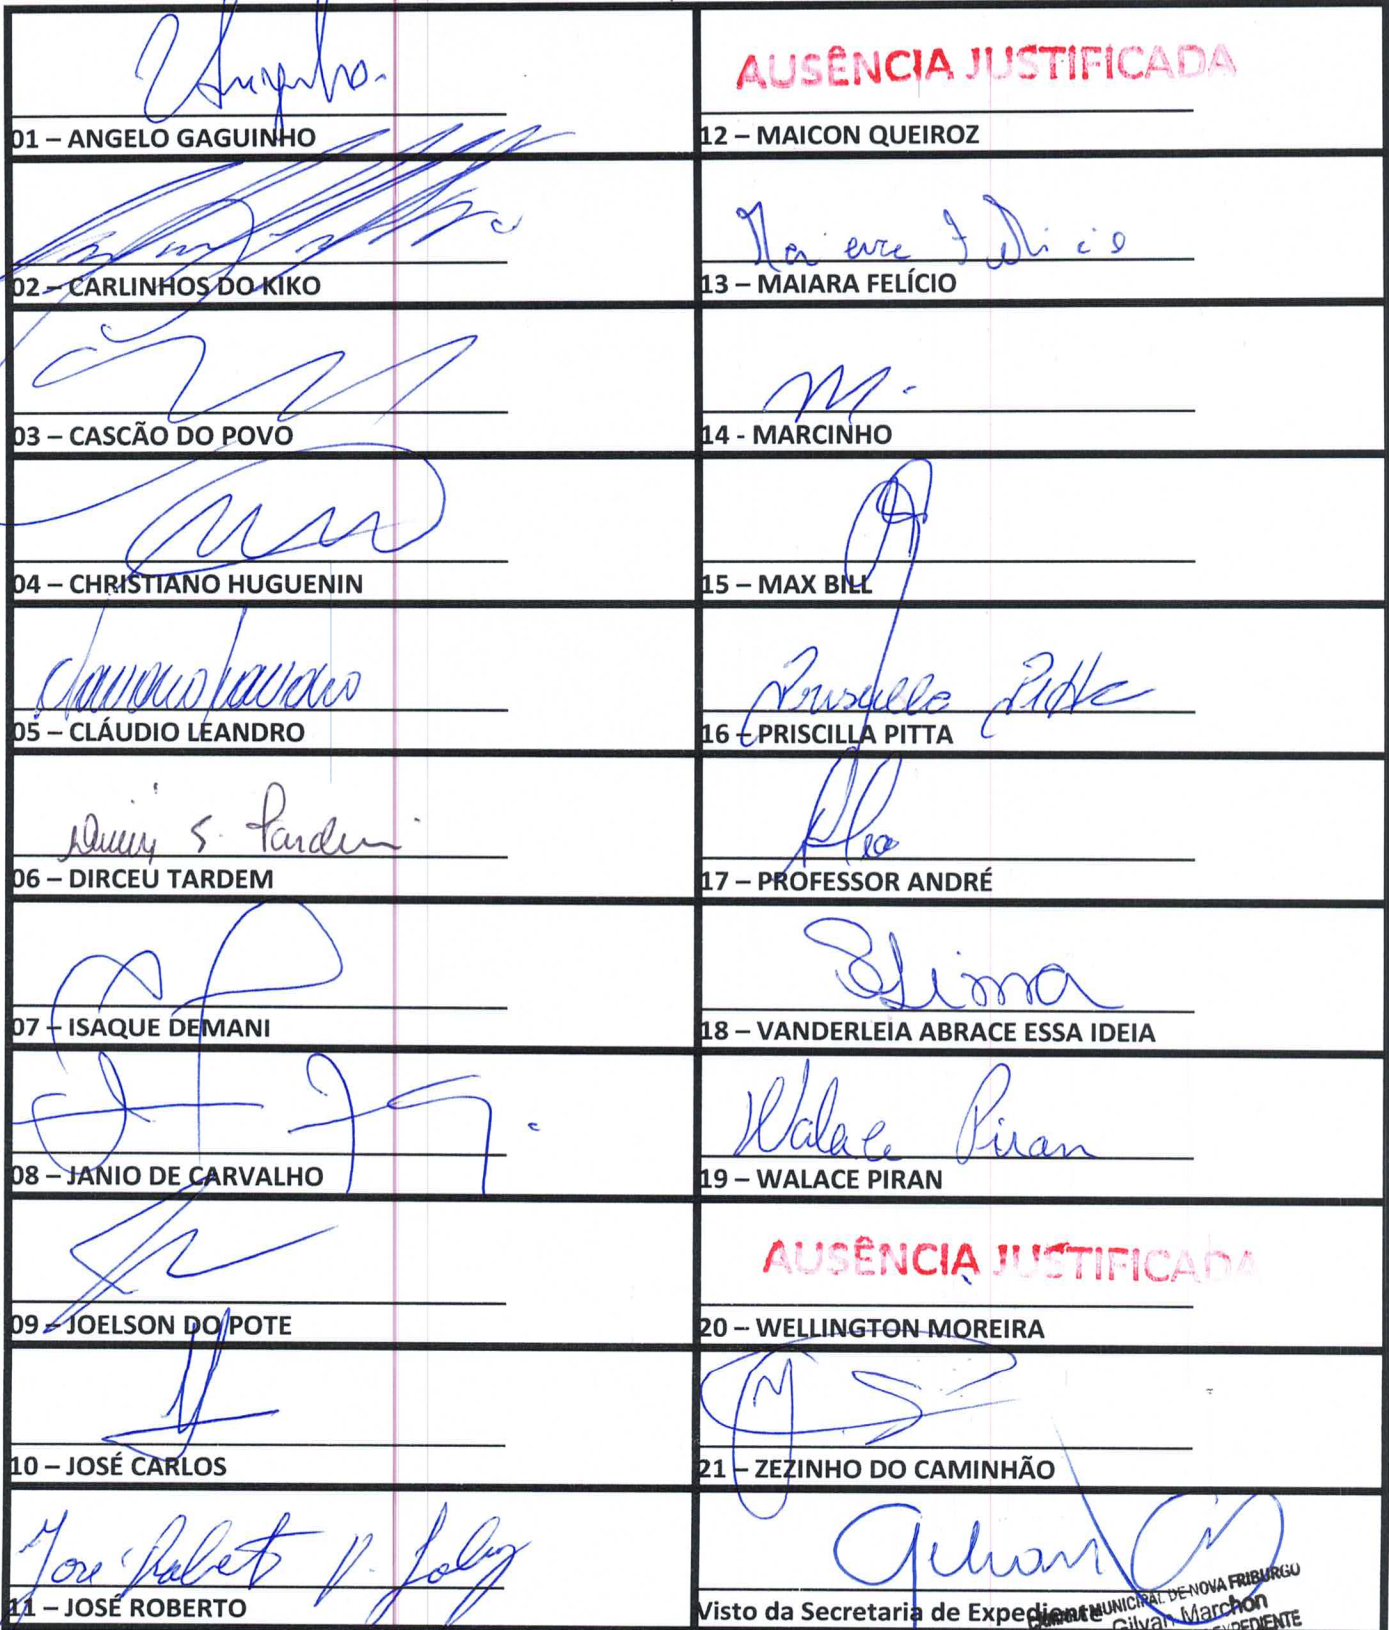 01 – ANGELO GAGUINHO
02 – CARLINHOS DO KIKO
03 – CASCÃO DO POVO
04 – CHRISTIANO HUGUENIN
05 – CLÁUDIO LEANDRO
S. Tardem
06 – DIRCEU TARDEM
07 – ISAQUE DEMANI
08 – JANIO DE CARVALHO
09 – JOELSON DO POTE
10 – JOSÉ CARLOS
José Roberto
11 – JOSÉ ROBERTO
AUSÊNCIA JUSTIFICADA
12 – MAICON QUEIROZ
Maiara Felicio
13 – MAIARA FELÍCIO
M.
14 - MARCINHO
15 – MAX BILL
Priscilla Pitta
16 – PRISCILLA PITTA
17 – PROFESSOR ANDRÉ
Lima
18 – VANDERLEIA ABRACE ESSA IDEIA
Walace Piran
19 – WALACE PIRAN
AUSÊNCIA JUSTIFICADA
20 – WELLINGTON MOREIRA
21 – ZEZINHO DO CAMINHÃO
Gilvan
Visto da Secretaria de Expediente
MUNICIPAL DE NOVA FRIBURGO
Gilvan Marchon
EXPEDIENTE